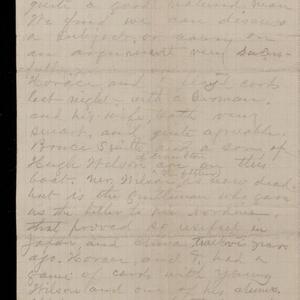 quite a good natured man
We find we can discuss
a subject, or carry on
an argument very success-
fully.
Horace, and I played cards
last night with a German,
and his wife, both very
smart, and quite agreeable.
Bruce Smith and a son of
Hugh Wilson are on this
boat. Mr. Wilson is now dead,
but is the gentleman who gave
us the letter to Mr.
that proved so useful in
Japan, and China twelve years
ago. Horace, and I, had a
game of cards with young
Wilson and one of his chums